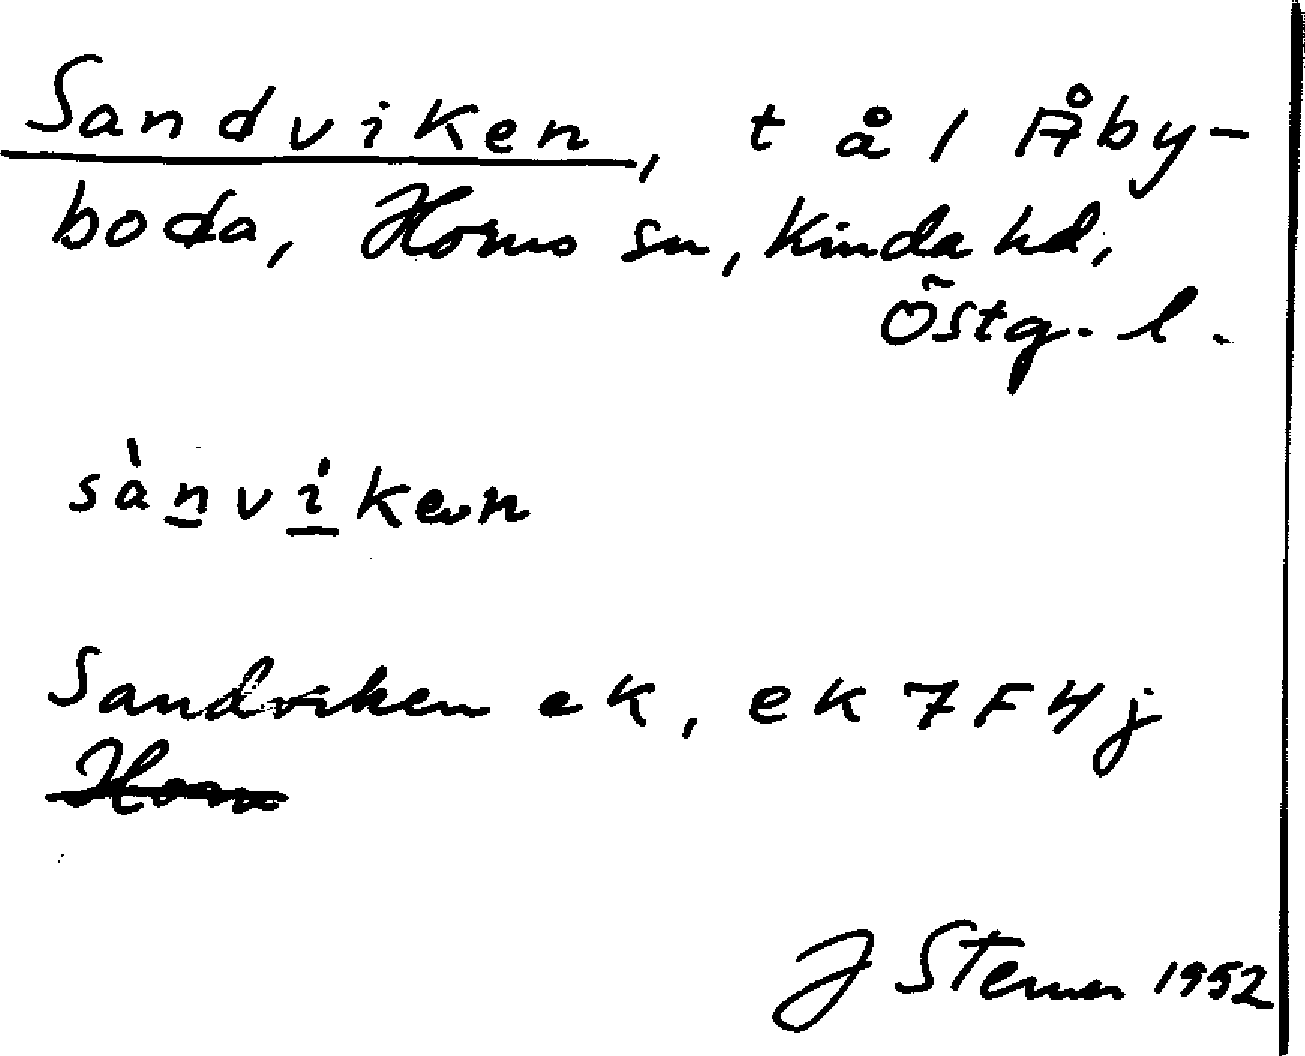 Sandviken, t å 1 Åby-
boda, Horns sn, Kinda hd,
Östg. l.
sànvíken
Sandviken ek, ek 7F4j
Horn
J Sterner 1952